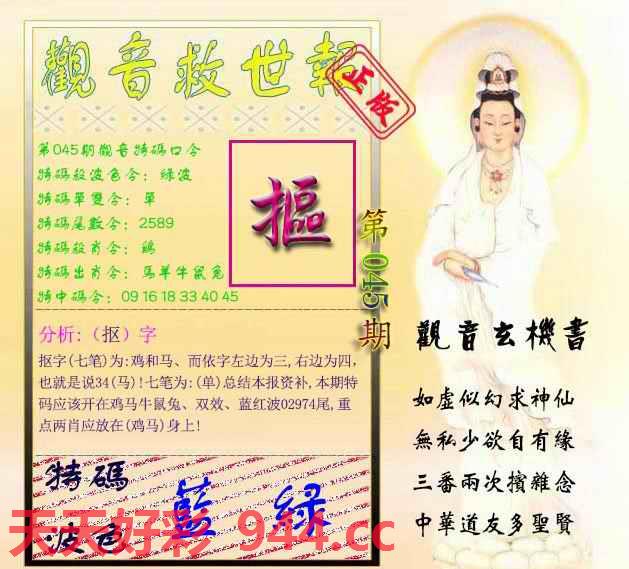 觀音救世報
正版
第045期觀音特碼口令
特碼殺波色令：綠波
特碼單雙令：單
特碼尾數令：2589
特碼殺肖令：鷄
特碼出肖令：馬羊牛鼠兔
特中碼令：09 16 18 33 40 45
摳
第045期
分析:（抠）字
抠字(七笔)为:鸡和马、而依字左边为三,右边为四,
也就是说34(马)!七笔为:(单)总结本报资补,本期特
码应该开在鸡马牛鼠兔、双效、蓝红波02974尾,重
点两肖应放在(鸡马)身上!
特碼
波色
藍 綠
觀音玄機書
如虚似幻求神仙
無私少欲自有緣
三番兩次擯雜念
中華道友多聖賢
天天好彩 944.cc